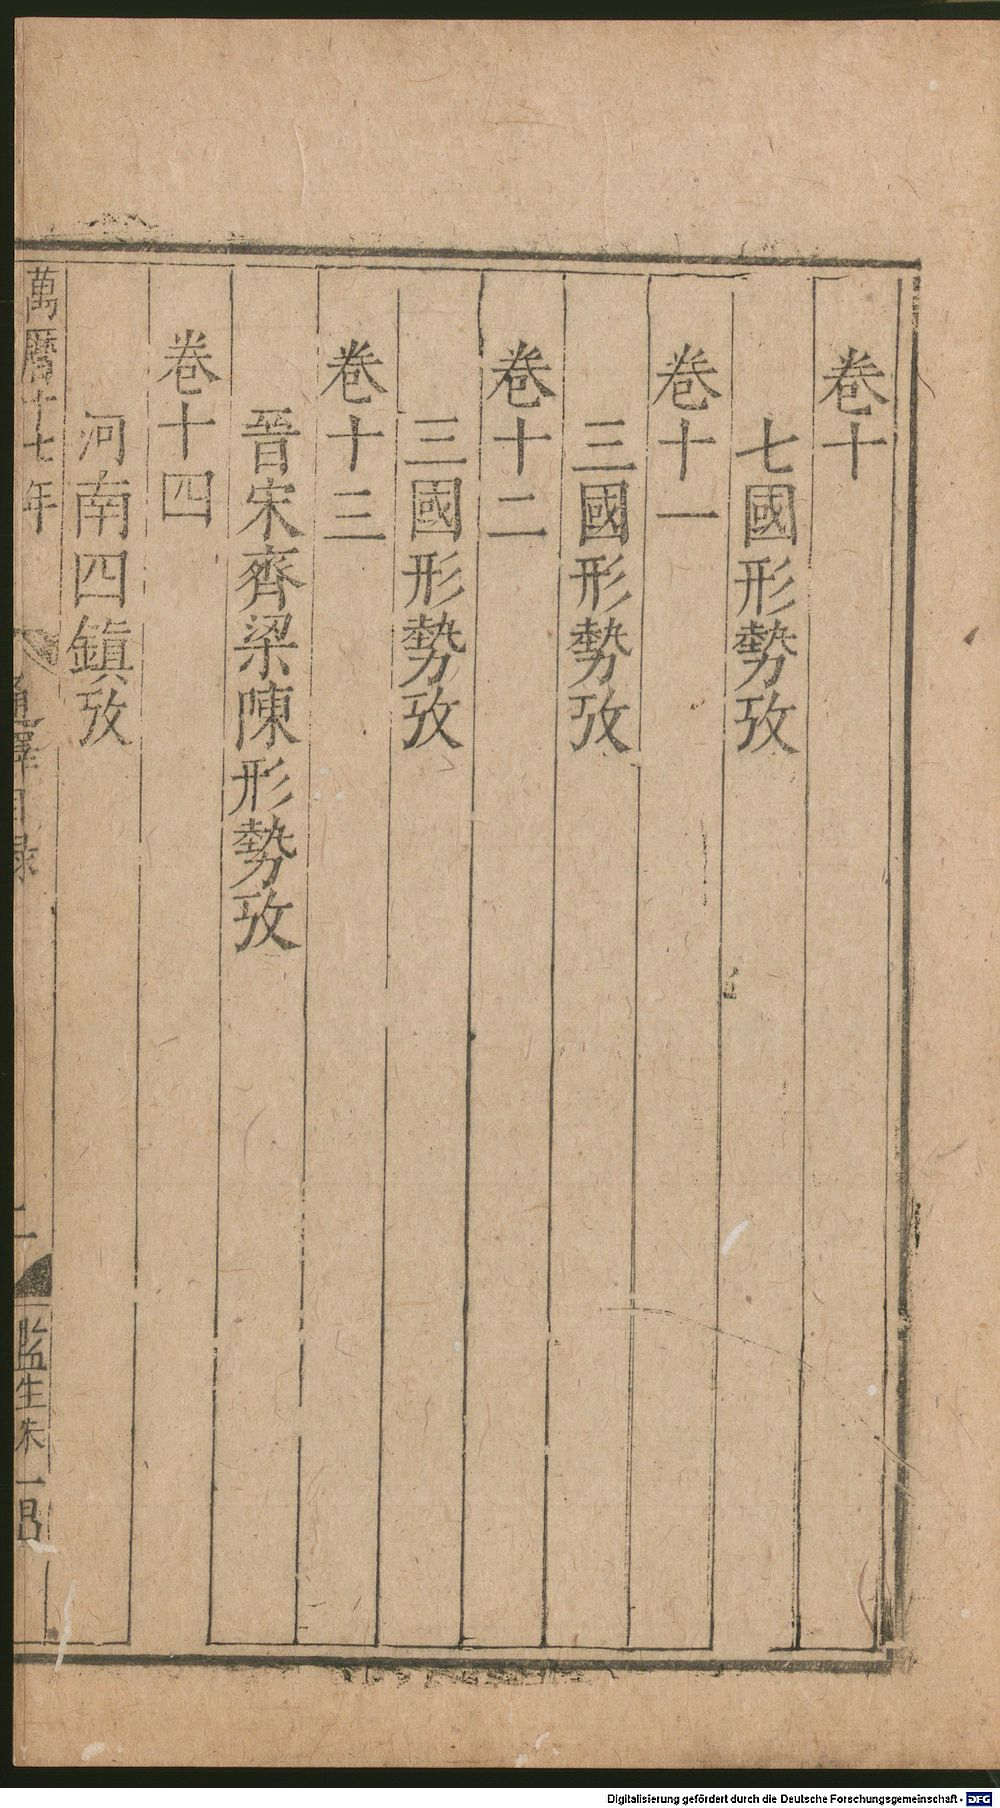 卷十
七國形勢攷
卷十一
三國形勢攷
卷十二
三國形勢攷
卷十三
晉宋齊梁陳形勢攷
卷十四
河南四鎮攷
萬曆十七年
通釋目録
二
監生朱一
Digitalisierung gefördert durch die Deutsche Forschungsgemeinschaft - DFG